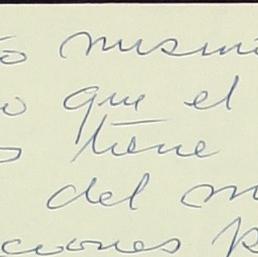 o mism
o que el
s tiene
del m
ciones p